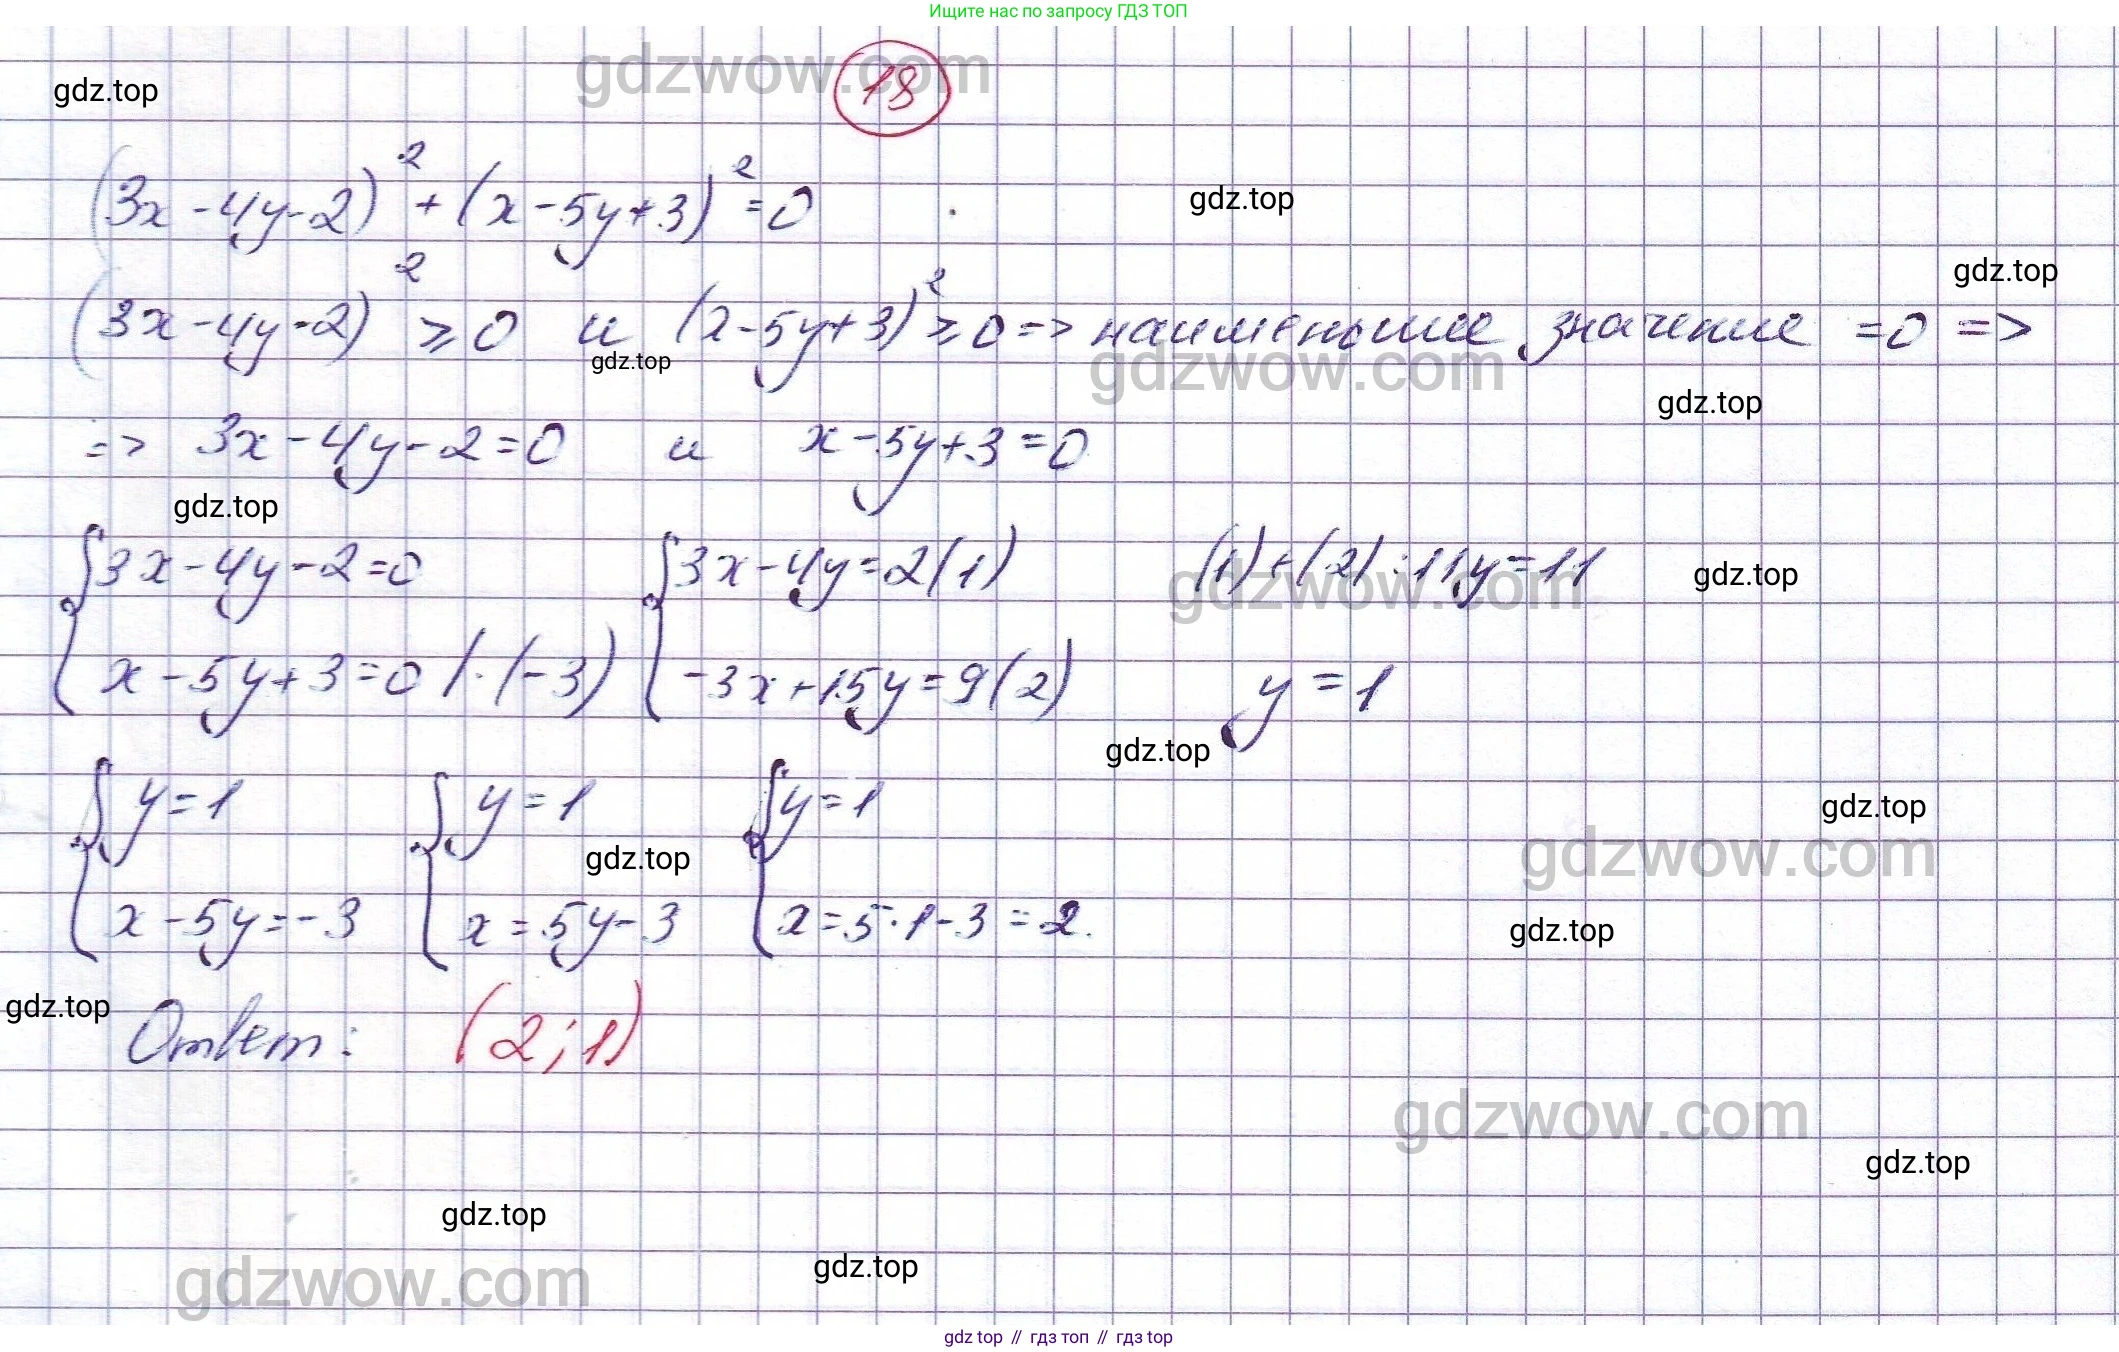 Ищите нас по запросу ГДЗ ТОП
gdzwow.com
18
gdz.top
(3x-4y-2)²+(x-5y+3)²=0
gdz.top
gdz.top
(3x-4y-2)²≥0 и (2-5y+3)²≥0=> наименьшие значение =0 =>
gdz.top
gdzwow.com
gdz.top
=> 3x-4y-2=0 и x-5y+3=0
gdz.top
{3x-4y-2=0 {3x-4y=2(1) (1)+(2):11y=11
gdzwow.com
gdz.top
x-5y+3=0 /·(-3) -3x+15y=9(2) y=1
gdz.top
{y=1 {y=1 {y=1
gdz.top
gdz.top
gdzwow.com
x-5y=-3 x=5y-3 x=5·1-3=2.
gdz.top
gdz.top
Ответ: (2;1)
gdzwow.com
gdz.top
gdz.top
gdz.top
gdzwow.com
gdz top // гдз топ // гдз top